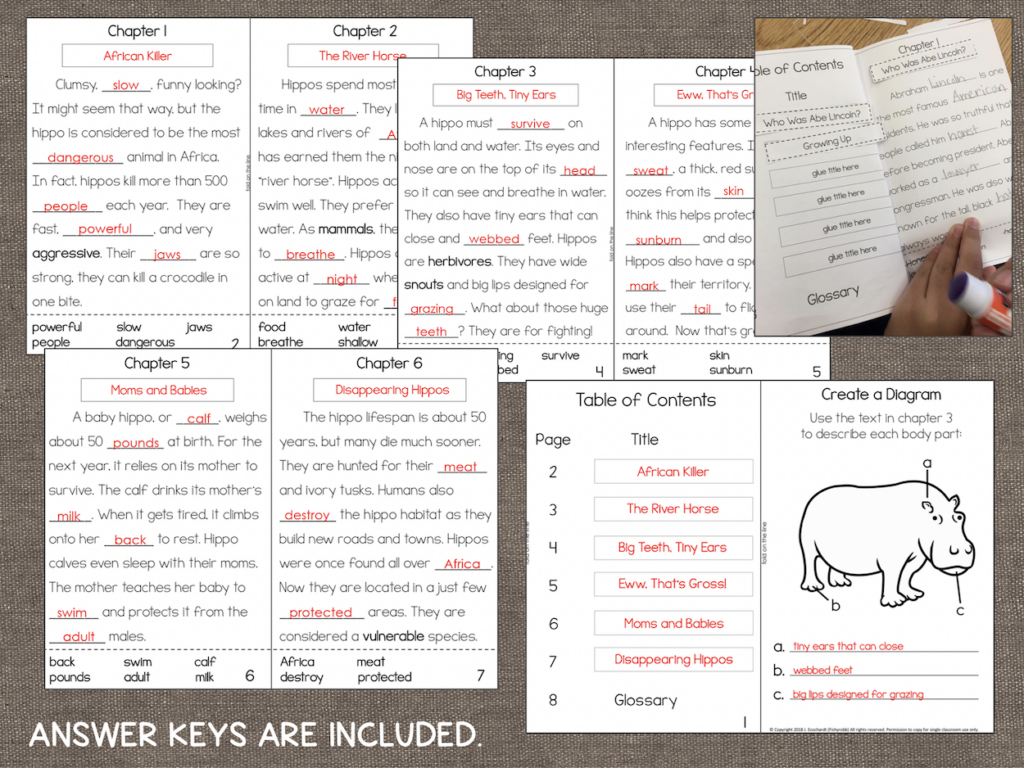 Chapter 1
African Killer
Clumsy, slow, funny looking?
It might seem that way, but the
hippo is considered to be the most
dangerous animal in Africa.
In fact, hippos kill more than 500
people each year. They are
fast, powerful, and very
aggressive. Their jaws are so
strong, they can kill a crocodile in
one bite.
powerful slow jaws
people dangerous
2
fold on the line
Chapter 2
The River Horse
Hippos spend most
time in water. They l
lakes and rivers of A
has earned them the ni
"river horse". Hippos ac
swim well. They prefer
water. As mammals, the
to breathe. Hippos c
active at night whe
on land to graze for f
food water
breathe shallow
Chapter 3
Big Teeth, Tiny Ears
A hippo must survive on
both land and water. Its eyes and
nose are on the top of its head
so it can see and breathe in water.
They also have tiny ears that can
close and webbed feet. Hippos
are herbivores. They have wide
snouts and big lips designed for
grazing. What about those huge
teeth? They are for fighting!
ing survive
bed 4
fold on the line
Chapter 4
Eww, That's Gr
A hippo has some
interesting features. I
sweat, a thick, red su
oozes from its skin
think this helps protec
sunburn and also
Hippos also have a spe
mark their territory.
use their tail to fli
around. Now that's gr
mark skin
sweat sunburn 5
ble of Contents
Title
Who Was Abe Lincoln?
Growing Up
glue title here
glue title here
glue title here
glue title here
Glossary
Chapter 1
Who Was Abe Lincoln?
Abraham Lincoln is one
the most famous American
idents. He was so truthful tha
eople called him honest Ab
efore becoming president, Abe
orked as a lawyer
ongressman. He was also
nown for the tall, black
always wo
Chapter 5
Moms and Babies
A baby hippo, or calf, weighs
about 50 pounds at birth. For the
next year, it relies on its mother to
survive. The calf drinks its mother's
milk. When it gets tired, it climbs
onto her back to rest. Hippo
calves even sleep with their moms.
The mother teaches her baby to
swim and protects it from the
adult males.
back swim calf
pounds adult milk 6
Chapter 6
Disappearing Hippos
The hippo lifespan is about 50
years, but many die much sooner.
They are hunted for their meat
and ivory tusks. Humans also
destroy the hippo habitat as they
build new roads and towns. Hippos
were once found all over Africa.
Now they are located in a just few
protected areas. They are
considered a vulnerable species.
Africa meat
destroy protected 7
Table of Contents
Page Title
2 African Killer
3 The River Horse
4 Big Teeth, Tiny Ears
5 Eww, That's Gross!
6 Moms and Babies
7 Disappearing Hippos
8 Glossary
1
fold on the line
Create a Diagram
Use the text in chapter 3
to describe each body part:
a
b
c
a. tiny ears that can close
b. webbed feet
c. big lips designed for grazing
ANSWER KEYS ARE INCLUDED.